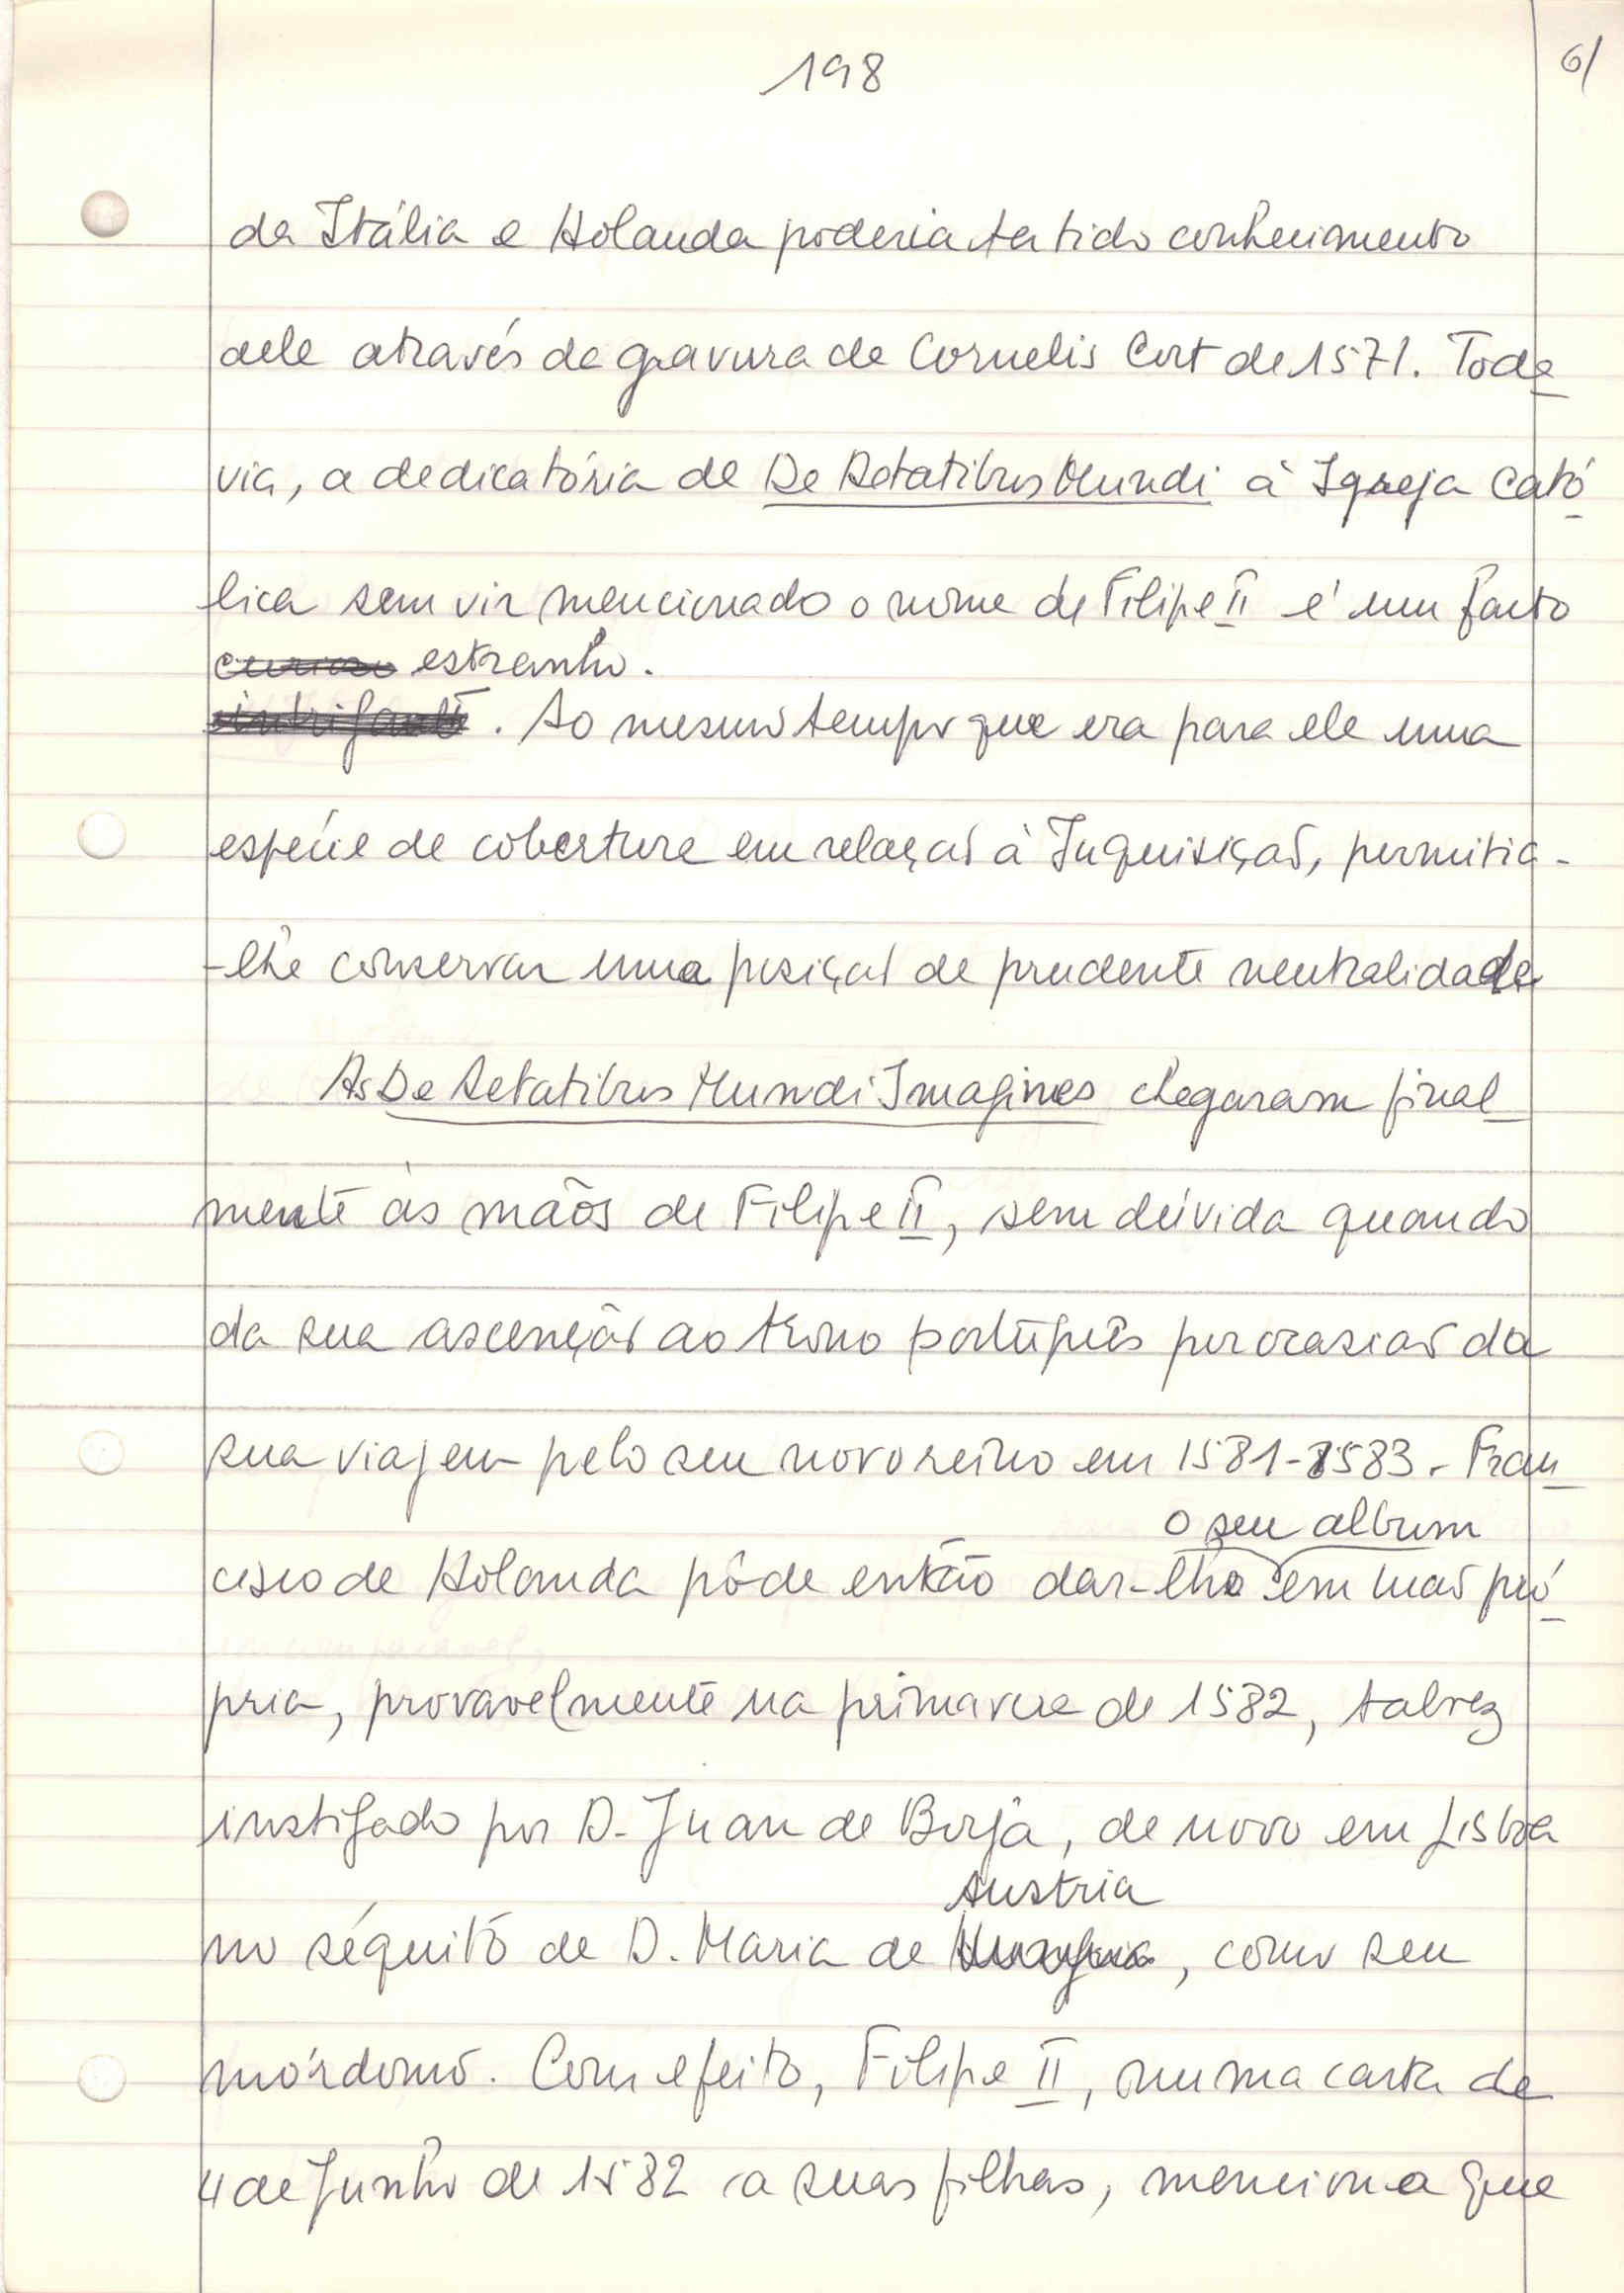 198
6/
da Itália e Holanda poderia ter tido conhecimento
dele através da gravura de Cornelis Cort de 1571. Toda
via, a dedicatória de De Aetatibus Mundi à Igreja Cató
lica sem vir mencionado o nome de Filipe II é um facto
curioso estranho.
intrigante. Ao mesmo tempo que era para ele uma
espécie de cobertura em relação à Inquisição, permitia-
-lhe conservar uma posição de prudente neutralidade
As De Aetatibus Mundi Imagines chegaram final
mente às mãos de Filipe II, sem dúvida quando
da sua ascenção ao trono português por ocasião da
sua viagem pelo seu novo reino em 1581-1583. Fran
o seu album
cisco de Holanda pôde então dar-lhe em mão pró
pria, provavelmente na primavera de 1582, talvez
instigado por D. Juan de Borja, de novo em Lisboa
Austria
no séquito de D. Maria de Hungria, como seu
mórdomo. Com efeito, Filipe II, numa carta de
4 de Junho de 1582 a suas filhas, menciona que